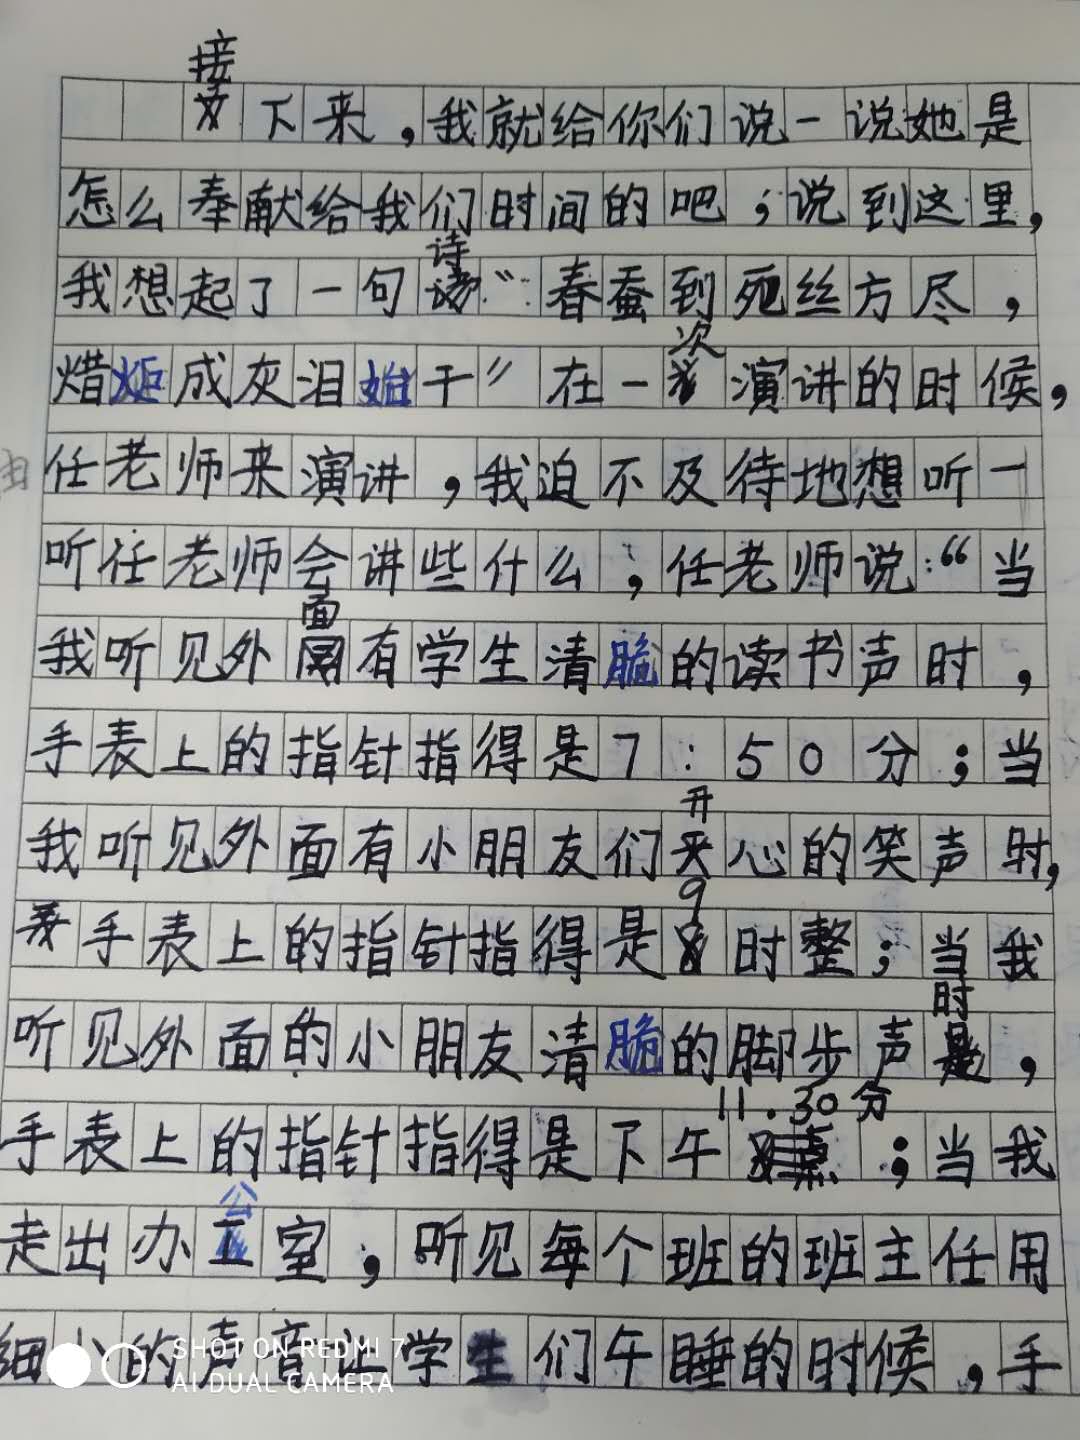 接下来，我就给你们说一说她是
怎么奉献给我们时间的吧；说到这里，
我想起了一句诗“春蚕到死丝方尽，
炬成灰泪始干”在一次演讲的时候，
由
任老师来演讲，我迫不及待地想听一
听任老师会讲些什么，任老师说：“当
我听见外面有学生清脆的读书声时，
手表上的指针指得是7:50分；当
我听见外面有小朋友们开心的笑声时，
手表上的指针指得是9时整；当我
听见外面的小朋友清脆的脚步声时，
手表上的指针指得是下午11.30分；当我
走出办公室，听见每个班的班主任用
细小的声音让学生们午睡的时候，手
SHOT ON REDMI 7
AI DUAL CAMERA